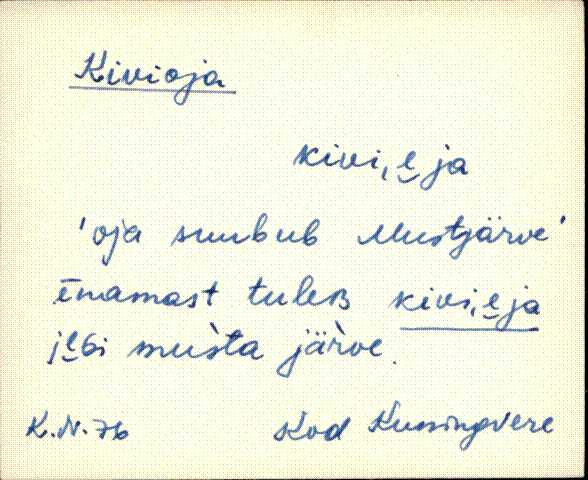 Kivioja
kivi,e̮ja
'oja suubub Mustjärve'
ēnamast tuleʙ kivi,e̮ja
je̮ɢi mùsta jä̀rve.
K.N. 76 Kod Kussingvere